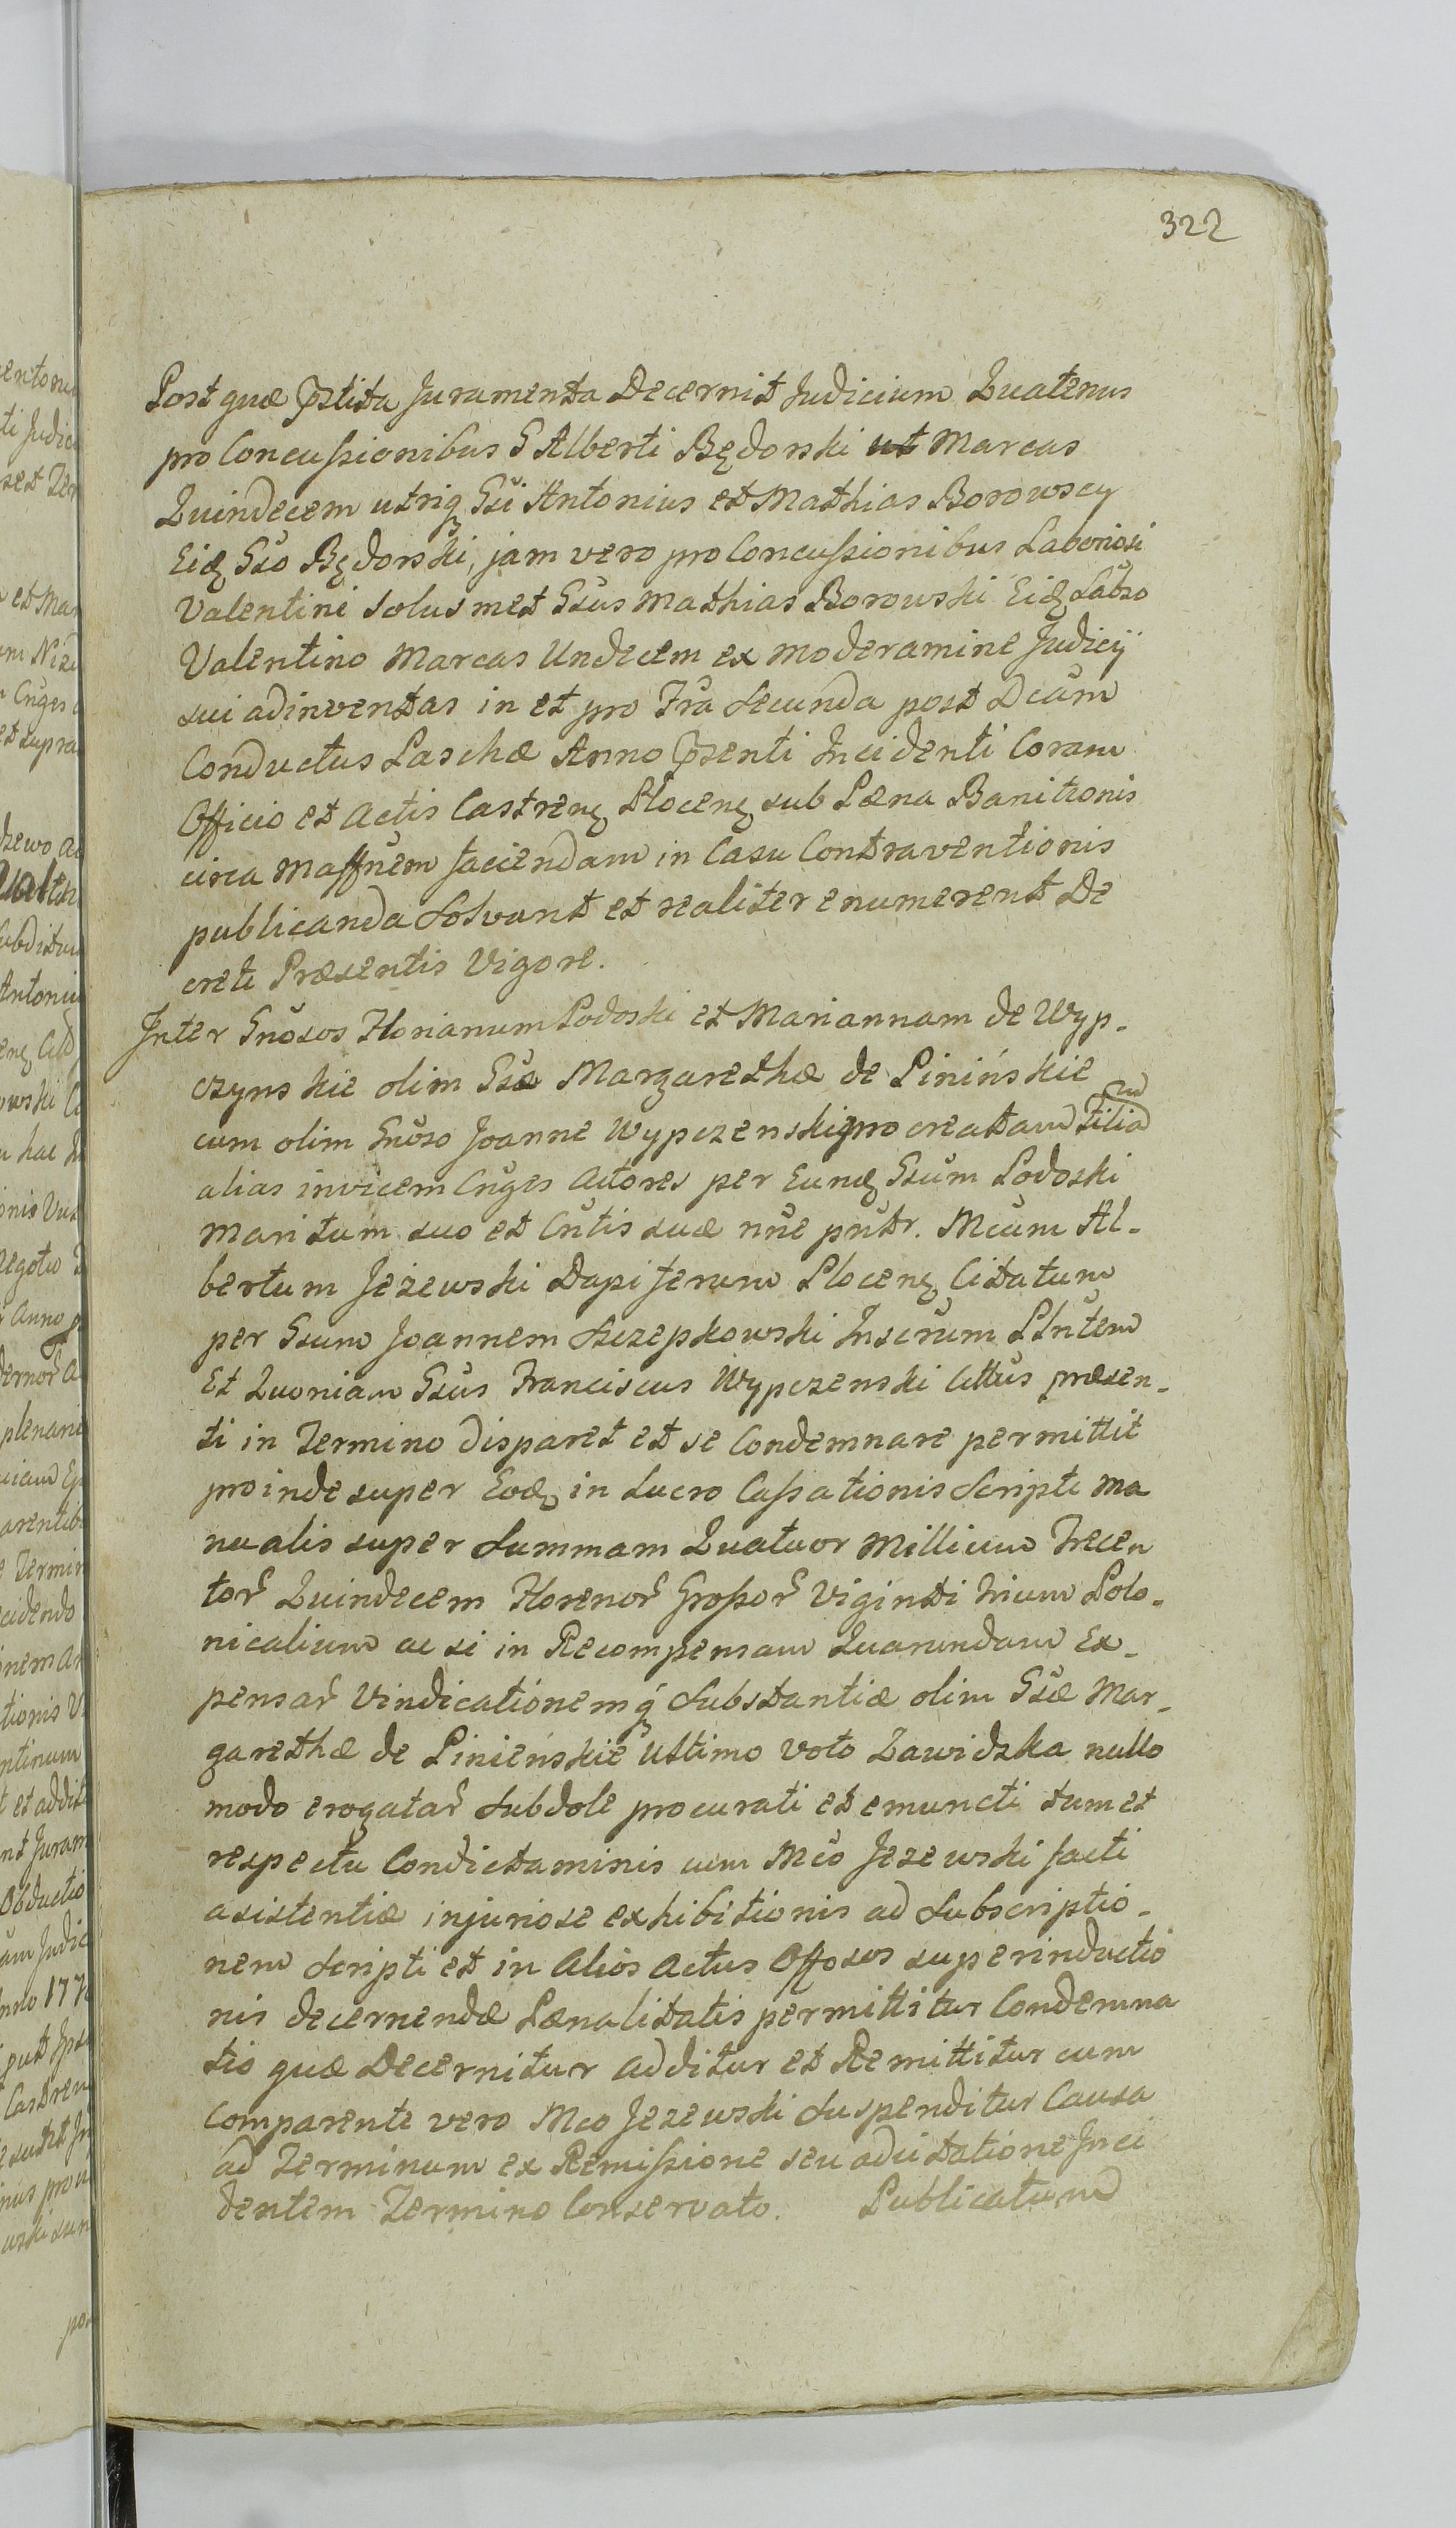 322
Post quæ pstita Juramenta Decernit Judicium Quatenus
pro Concussionibus G Alberti Będorski ut Marcas
Quindecem utriq Gsi Antonius et Mathias Borowscy
Eid Gso Będorski, jam vero pro Concussionibus Laboriosi
Valentini solusmet Gsus Mathias Borowski Eid Labso
Valentino Marcas Undecem ex moderamine Judicij
sui adinventas in et pro Fra Secunda post Dcam
Conductus Paschæ Anno psenti Incidenti Coram
Officio et Actis Castren Plocen sub Pæna Banitionis
circa Maffnem faciendam in Casu Contraventionis
publicanda Solvant et realiter enumerent De
creti Præsentis Vigore.
Inter Gnosos Florianum Podoski et Mariannam de Wyp-
czynskie olim Gsæ Margarethæ de Pinińskie
cum olim Gnoso Joanne Wypczenski procreatam filiam
alias invicem Cnges Actores per Eund Gsum Podoski
Maritum suo et Cntis suæ nne pntr. Mcum Al-
bertum Jeżewski Dapiferum Plocen Citatum
per Gsum Joannem Szczepkowski Juscrum Plntem
Et Quoniam Gsus Franciscus Wypczenski Cittus præsen-
ti in Termino disparet et se Condemnare permittit
proinde super Eod in Lucro Cassationis Scripti Ma
nualis super Summam Quatuor Millium Trecen
tor Quindecem Florenor Grossor Viginti trium Polo-
nicalium ac si in Recompensam Quarundam Ex-
pensar Vindicationemq Substantiæ olim Gsæ Mar-
garethæ de Piniénskie Ultimo voto Zawidzka nullo
modo erogatar Subdole procurati et emuncti tum et
respectu Condictaminis cum Mco Jezewski facti
asistentiæ injuriose exhibitionis ad Subscriptio-
nem Scripti et in Alios Actus Offosos superinductio
nis decernendæ Pænalitatis permittitur Condemna
tio quæ Decernitur Additur et Remittitur cum
Comparente vero Mco Jezewski Suspenditur Causa
ad Terminum ex Remissione seu adcitatione Inci
dentem Termino Conservato. Publicatum